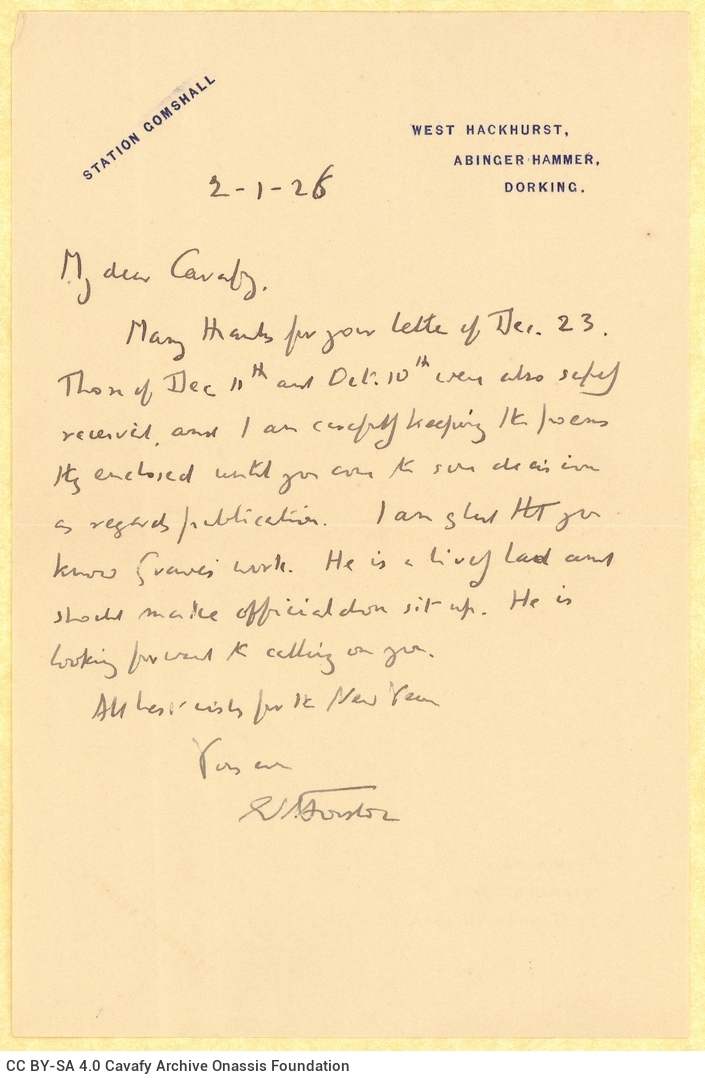 STATION GOMSHALL
WEST HACKHURST,
ABINGER HAMMER,
DORKING.
2-1-26
My dear Cavafy,
Many thanks for your letter of Dec. 23.
Those of Dec 11th and Oct. 10th were also safely
received, and I am carefully keeping the poems
they enclosed until you come to some decision
as regards publication. I am glad that you
know Graves' work. He is a lively lad and
should make official don sit up. He is
looking forward to calling on you.
All best wishes for the New Year
Yours ever
EMForster
CC BY-SA 4.0 Cavafy Archive Onassis Foundation